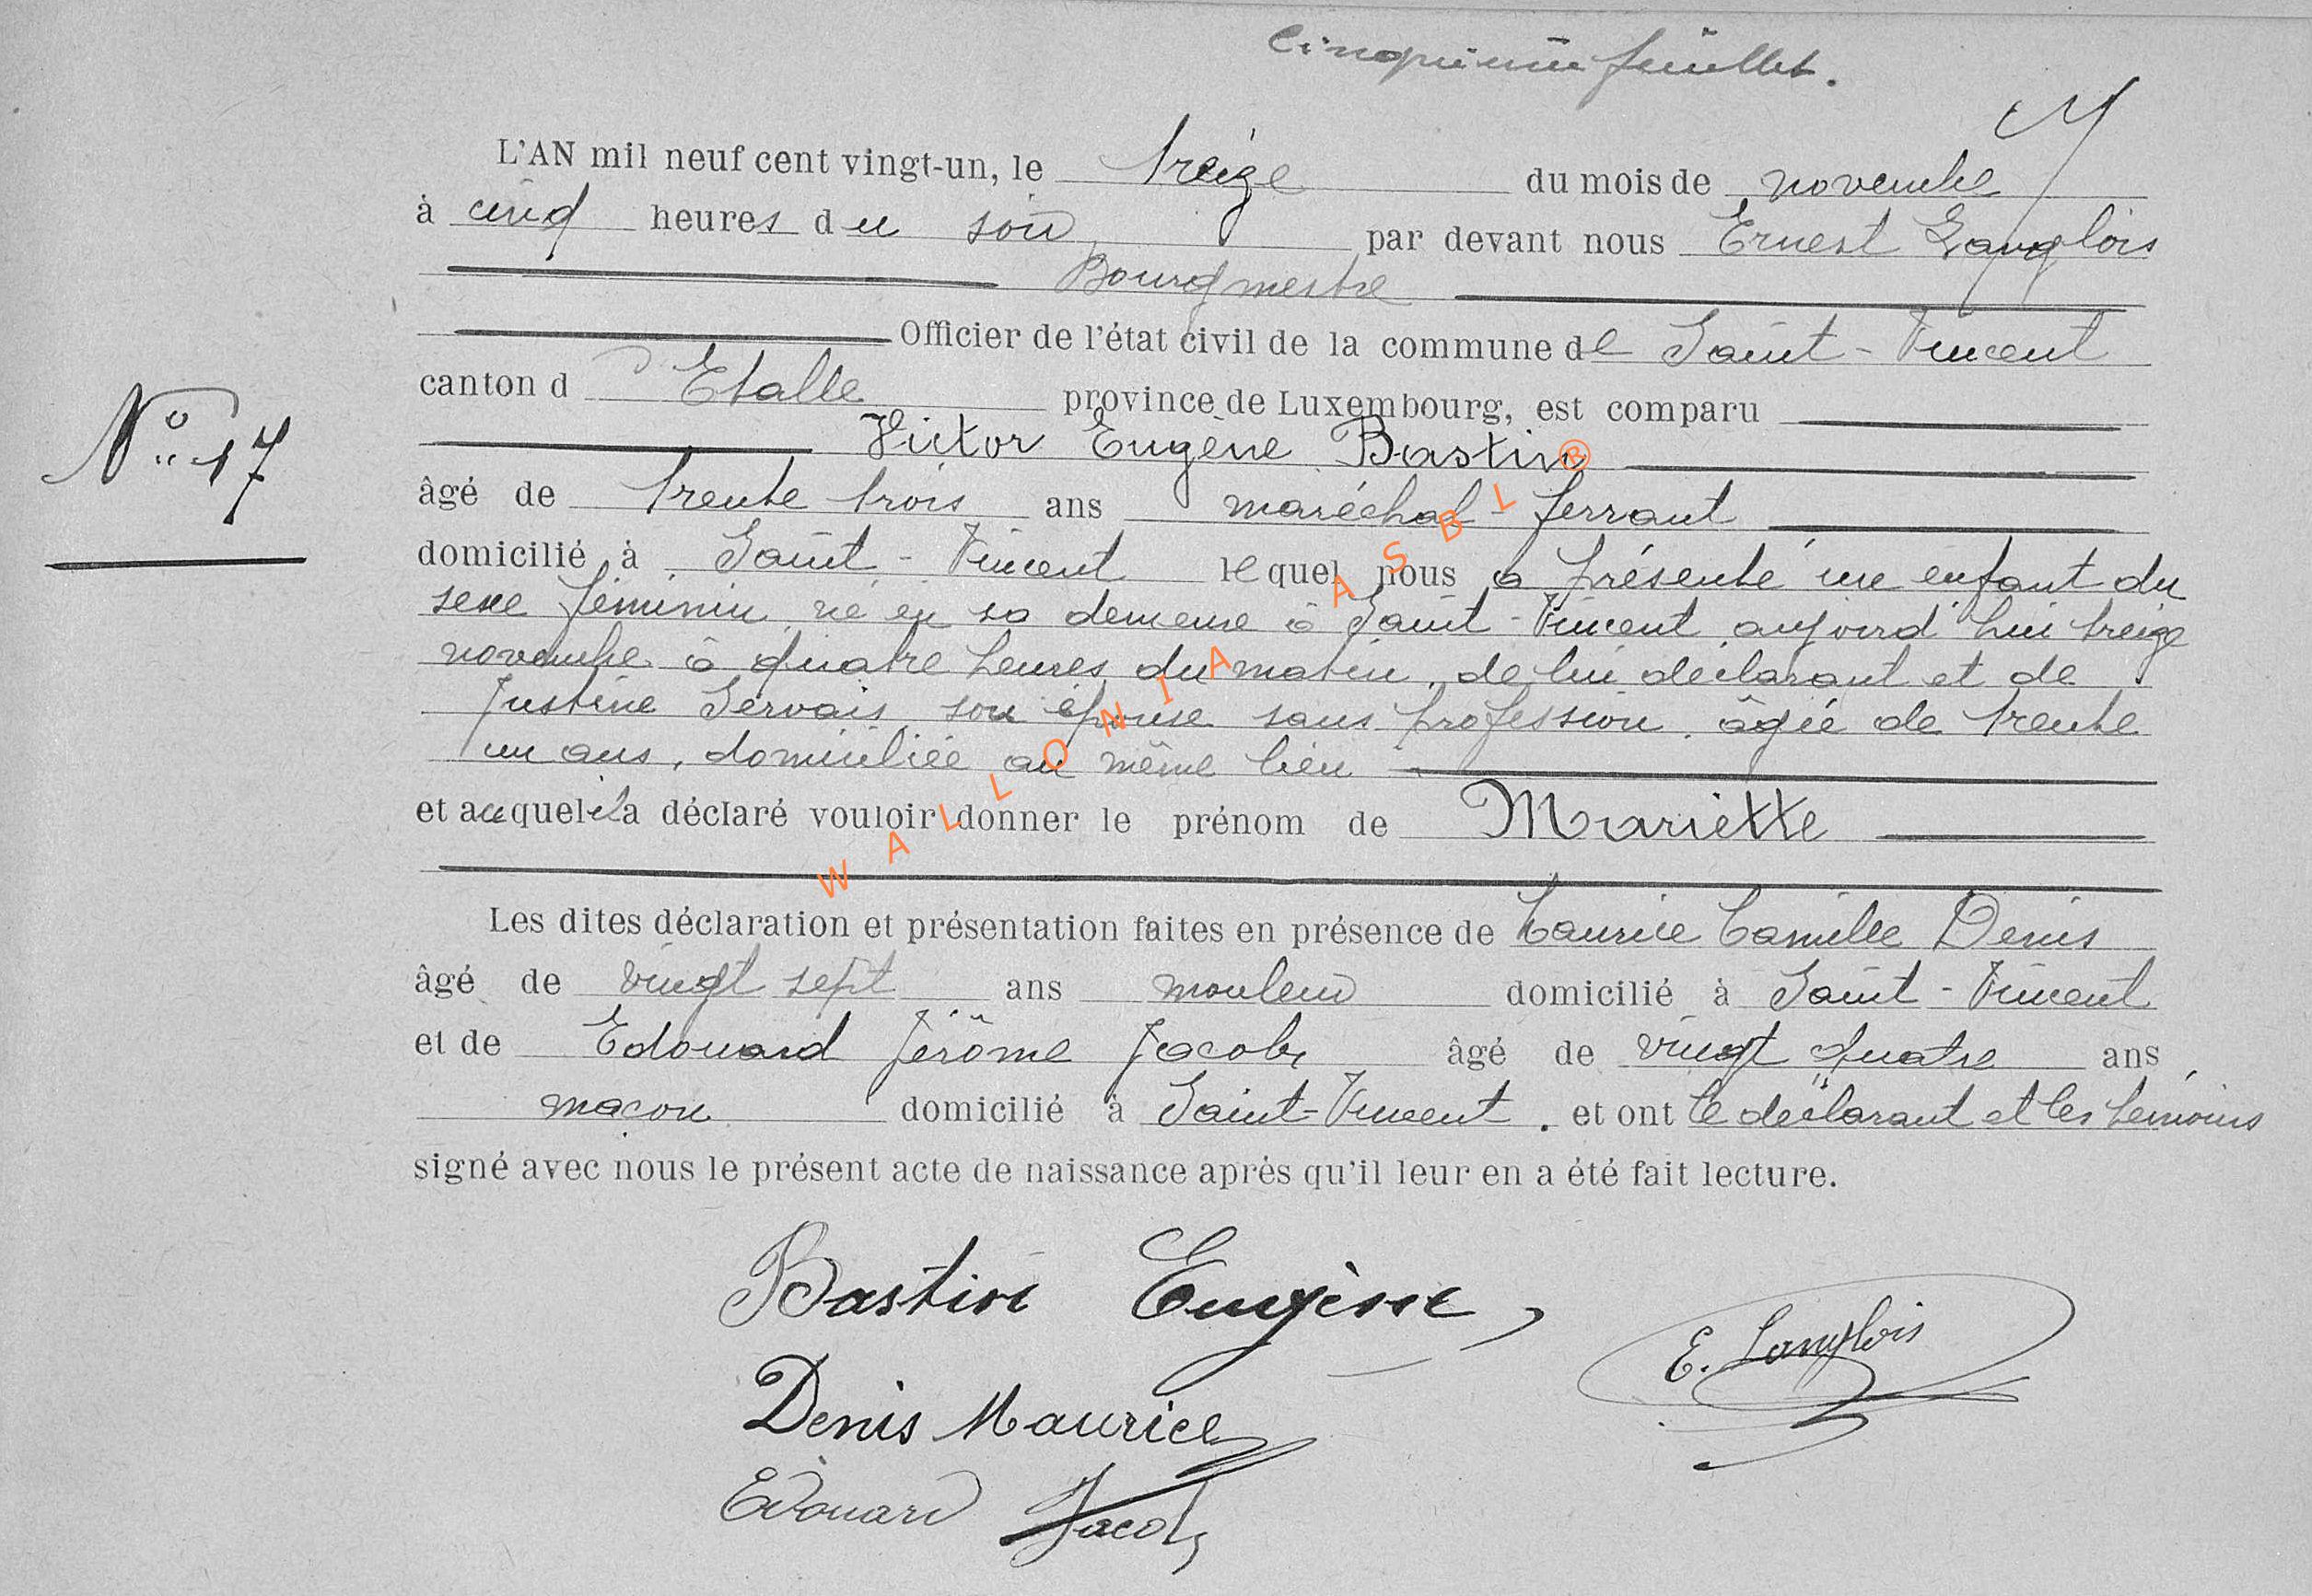 Cinquième feuillet.
L'AN mil neuf cent vingt-un, le treize du mois de novembre
à cinq heures du soir par devant nous Ernest Langlois
Bourgmestre
Officier de l'état civil de la commune de Saint-Vincent
canton d'Etalle province de Luxembourg, est comparu
N° 17
Victor Eugène Bastin
âgé de trente trois ans maréchal-ferrant
domicilié à Saint-Vincent lequel nous a présenté un enfant du
sexe féminin né en sa demeure à Saint-Vincent aujourd'hui treize
novembre à quatre heures du matin, de lui déclarant et de
Justine Servais son épouse sans profession, âgée de trente
un ans, domiciliée au même lieu
et auquel il a déclaré vouloir donner le prénom de Mariette
Les dites déclaration et présentation faites en présence de Maurice Camille Denis
âgé de vingt sept ans mouleur domicilié à Saint-Vincent
et de Edouard Jérôme Jacob âgé de vingt quatre ans,
maçon domicilié à Saint-Vincent. et ont le déclarant et les témoins
signé avec nous le présent acte de naissance après qu'il leur en a été fait lecture.
Bastin Eugène,
E. Langlois
Denis Maurice
Edouard Jacob
WALLONIA ASBL ®